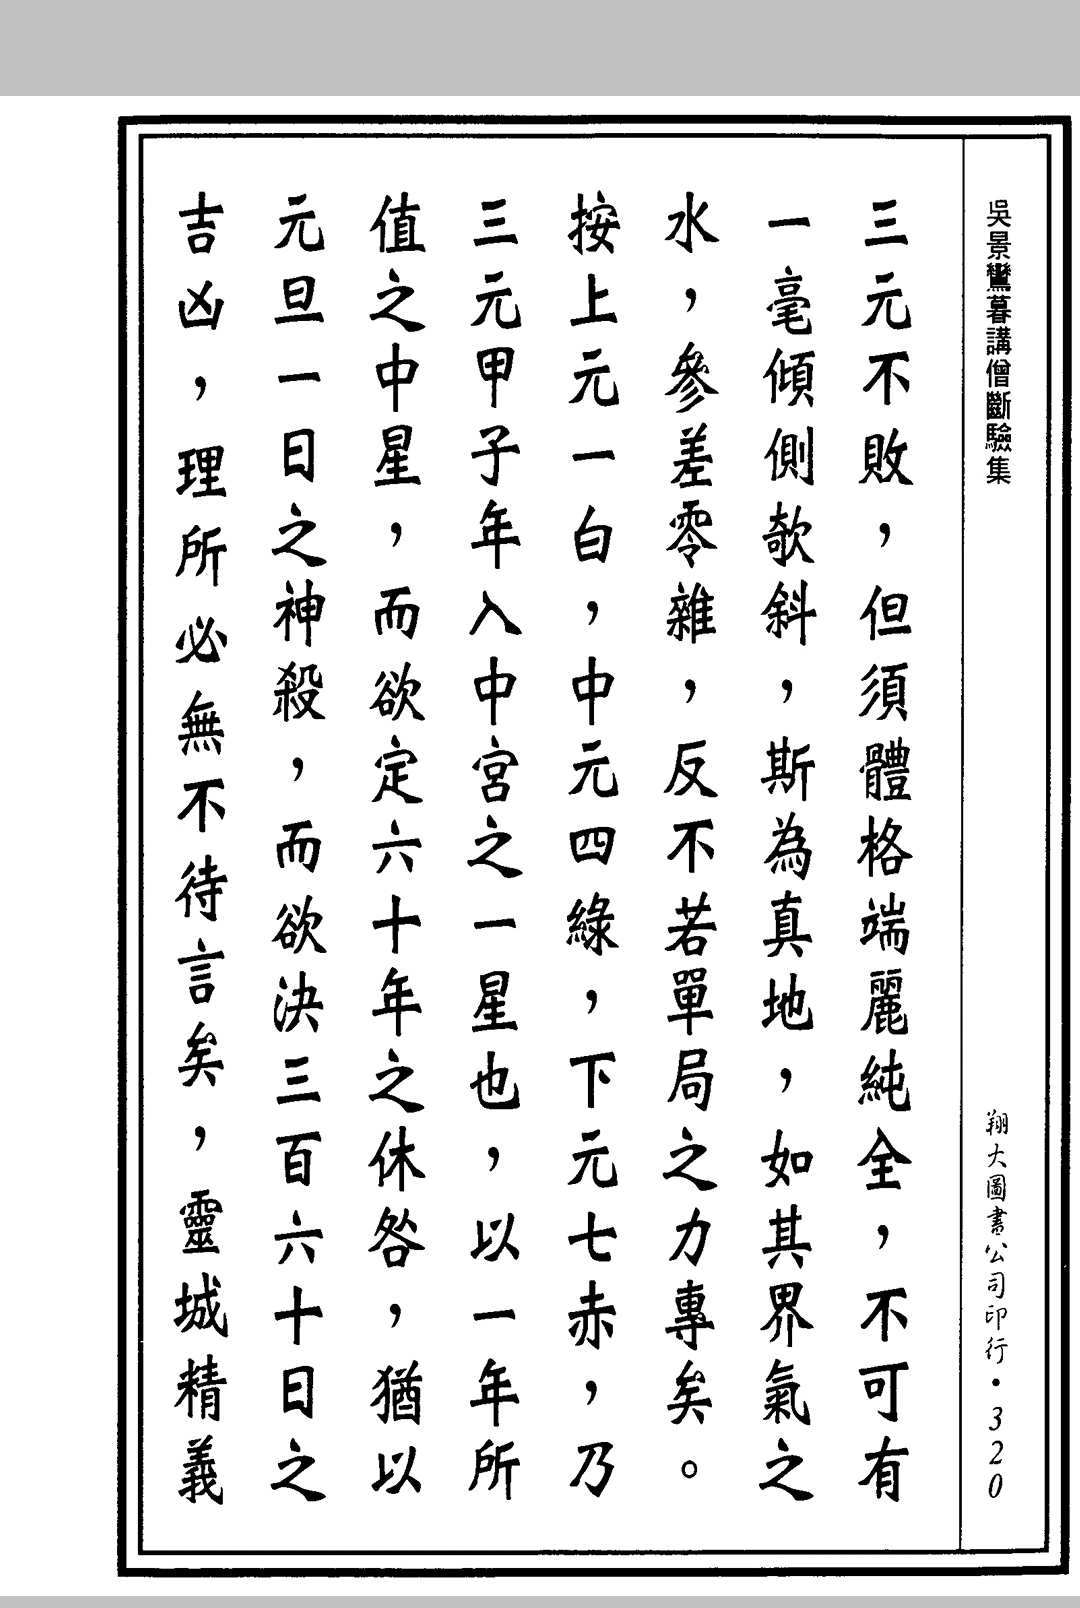 吳景鸞暮講僧斷驗集
翔大圖書公司印行•320
三元不敗，但須體格端麗純全，不可有
一毫傾側欹斜，斯為真地，如其界氣之
水，參差零雜，反不若單局之力專矣。
按上元一白，中元四綠，下元七赤，乃
三元甲子年入中宮之一星也，以一年所
值之中星，而欲定六十年之休咎，猶以
元旦一日之神殺，而欲決三百六十日之
吉凶，理所必無不待言矣，靈城精義